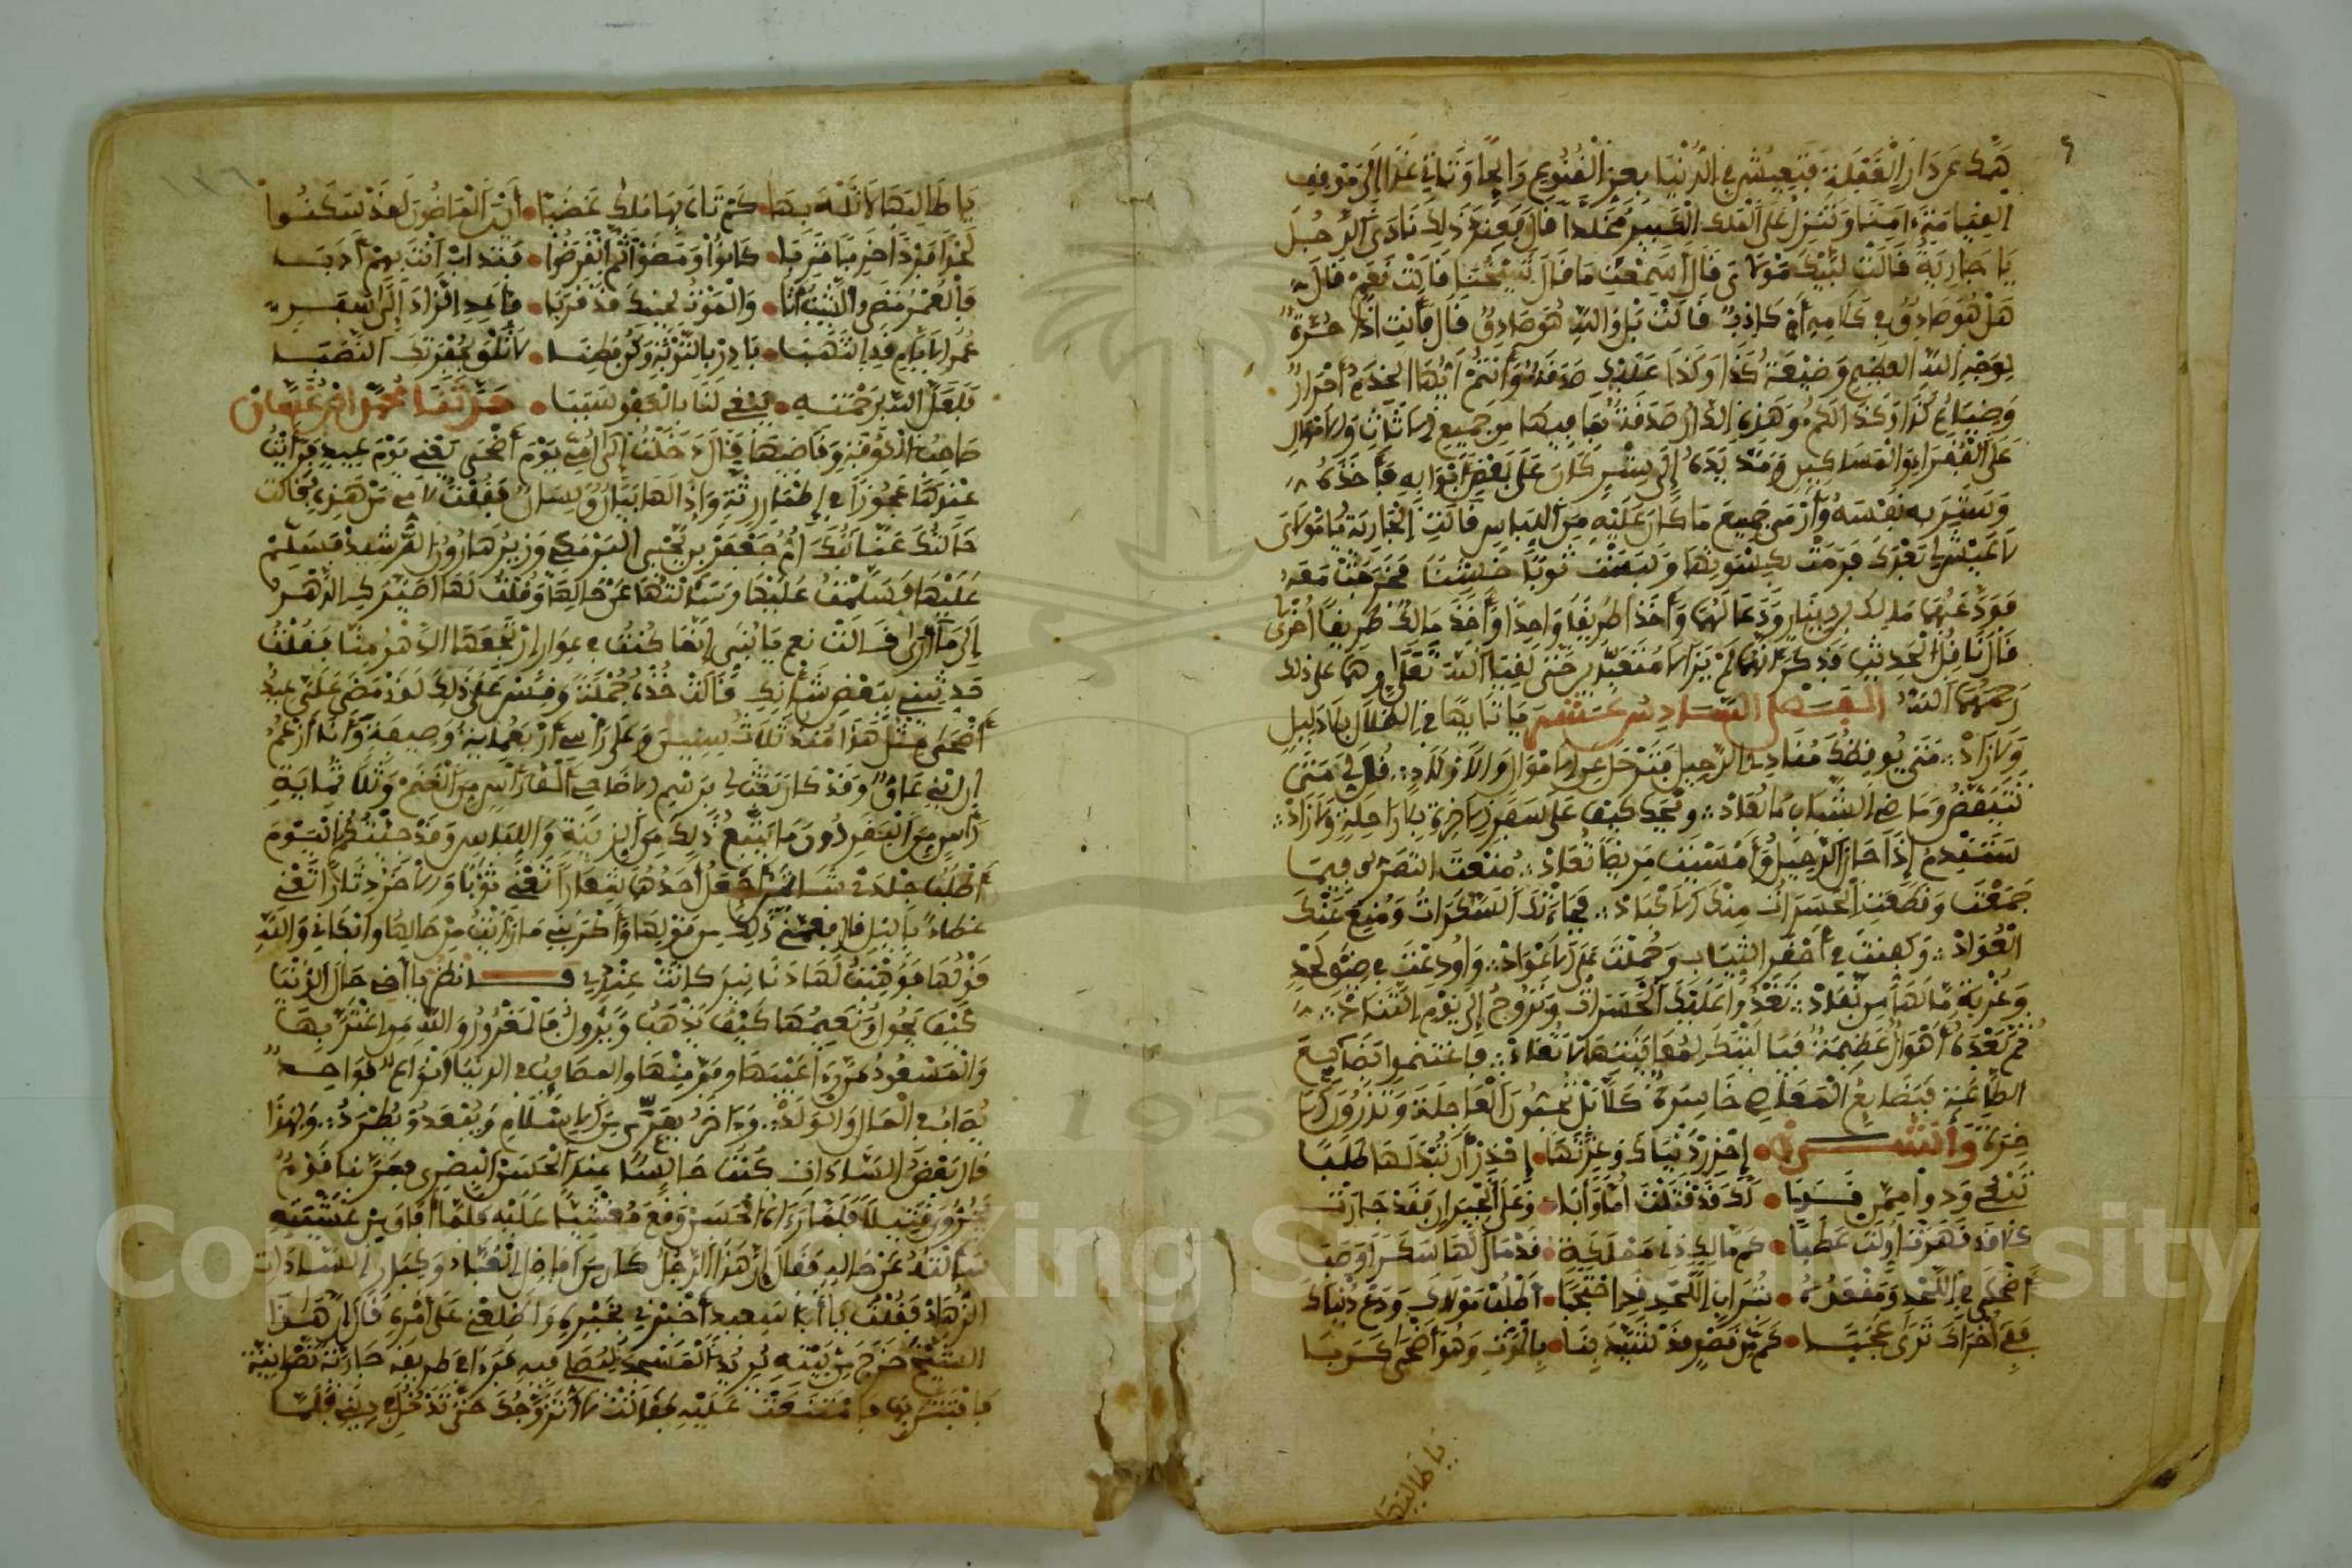 هَمِّكَ عَن دَارِ الْغَفْلَة فَتَعِيشُ فِي الدُّنْيَا بِعِزِّ الْقُنُوعِ وَتَأْتِي غَدًا إِلَى مَوْقِفِ
القِيَامَةِ آمِنًا وَتَنْزِلُ عَلَى الْمَلِكِ الْكَبِيرِ مُخَلَّدًا قَالَ فَعِنْدَ ذَلِكَ نَادَى الرَّجُلُ
يَا جَارِيَةُ قَالَتْ لَبَّيْكَ مَوْلَايَ قَالَ أَسَمِعْتِ مَا قَالَ شَيْخُنَا قَالَتْ نَعَمْ قَالَ
هَلْ هُوَ صَادِقٌ فِي كَلَامِهِ أَمْ كَاذِبٌ قَالَتْ بَلْ وَاللهِ هُوَ صَادِقٌ قَالَ فَأَنْتِ إِذًا حُرَّةٌ
لِوَجْهِ اللهِ العَظِيمِ وَضَيْعَةُ كَذَا وَكَذَا عَلَيْكِ صَدَقَةٌ وَأَنْتُمْ أَيُّهَا الخَدَمُ أَحْرَارٌ
وَضِيَاعُ كَذَا وَكَذَا لَكُمْ وَهَذِهِ الدَّارُ صَدَقَةٌ بِمَا فِيهَا مِن جَمِيعِ الأَثَاثِ وَالأَمْوَالِ
عَلَى الْفُقَرَاءِ وَالْمَسَاكِينِ وَمَدَّ يَدَهُ إِلَى سِتْرٍ كَانَ عَلَى بَعْضِ أَبْوَابِهِ فَأَخَذَهُ
وَسَتَرَ بِهِ نَفْسَهُ وَأَرْمَى جَمِيعَ مَا كَانَ عَلَيْهِ مِنَ اللِّبَاسِ فَقَالَتِ الْجَارِيَةُ يَا مَوْلَايَ
لَا عَيْشَ لِي بَعْدَكَ فَرَمَتْ بِكِسْوَتِهَا وَلَبِسَتْ ثَوْبًا خَشِنًا فَخَرَجَتْ مَعَهُ
فَوَدَّعَهُمَا مَالِكُ بْنُ دِينَارٍ وَدَعَا لَهُمَا وَأَخَذَا طَرِيقًا وَاحِدًا وَأَخَذَ مَالِكٌ طَرِيقًا أُخْرَى
قَالَ نَاقِلُ الْحَدِيثِ فَذُكِرَ أَنَّهُمَا لَمْ يَزَالَا مُتَعَبِّدَيْنِ حَتَّى لَقِيَا اللهَ تَعَالَى وَهُمَا عَلَى ذَلِكَ
رَحِمَهُمَا اللهُ الفَصْلُ السَّادِسُ عَشَرَ يَا تَايِهًا فِي الضَّلَالِ بِلَا دَلِيلِ
وَلَا زَادْ مَتَى يُوقِظُكَ مُنَادِي الرَّحِيلِ فَتَرْحَلُ عَنِ الأَمْوَالِ وَالأَوْلَادِ قُلْ لِي مَتَى
تَتَيَقَّظُ وَمَاضِي الشَّبَابِ لَا يُعَادْ وَيْحَكَ كَيْفَ عَلَى سَفَرِ الآخِرَةِ بِلَا رَاحِلَةٍ وَلَا زَادْ
سَتَنْدَمُ إِذَا حَانَ الرَّحِيلُ وَأَمْسَيْتَ مَرِيضًا تُعَادْ مُنِعْتَ التَّصَرُّفَ فِيمَا
جَمَعْتَ وَقَطَّعَتِ الْحَسَرَاتُ مِنْكَ الأَكْبَادْ فَجَاءَتْكَ السَّكَرَاتُ وَمُنِعَ عَنْكَ
الْعُوَّادْ وَكُفِّنْتَ فِي أَحْقَرِ الثِّيَابِ وَحُمِلْتَ عَلَى الأَعْوَادْ وَأُودِعْتَ فِي ضِيقِ لَحْدٍ
وَغُرْبَةٍ مَا لَهَا مِن نَفَادْ تَغْدُو عَلَيْكَ الْحَسَرَاتُ وَتَرُوحُ إِلَى يَوْمِ التَّنَادْ
ثُمَّ بَعْدَهُ أَهْوَالٌ عَظِيمَةٌ فَيَا لَيْتَكَ لِمُعَايَنَتِهَا لَا تُعَادْ فَاغْتَنِمُوا بَضَائِعَ
الطَّاعَةِ فَبَضَائِعُ الْمَعَاصِي خَاسِرَةٌ كَلَّا بَلْ تُحِبُّونَ الْعَاجِلَةَ وَتَذَرُونَ الآ
خِرَةَ وَأَنْشَدُوا إِحْذَرْ دُنْيَاكَ وَغِرَّتَهَا إِحْذَرْ أَنْ تَبْدُ لَهَا طَلَبَا
تَبْغِي وُدًّا مِمَّن قَدْ قَتَلَتْ أُمًّا وَأَبَا وَعَلَى الْجِيرَانِ فَقَدْ جَارَتْ
كَمْ مَالِكٍ ذِي مَمْلَكَةٍ قَدْ مَالَ لَهَا سَكَرًا وَصَبَا
أَضْحَى فِي اللَّحْدِ وَمَقْعَدُهُ تُرَابُ اللَّحْدِ قَدِ احْتُجِبَا أُطْلُبْ مَوْلَاكَ وَدَعْ دُنْيَاكَ
فَفِي أُخْرَاكَ تَرَى عَجَبَا كَم مِّن قَصْرٍ قَدْ شِيدَ بِنَا بِالْمَوْتِ وَهُوَ أَضْحَى خَرِبَا
يا طالبها
يَا طَالِبَهَا لَا تَلْهَ بِهَا كَمْ تَاهَ بِهَا مَلِكٌ غَضِبَا أَيْنَ الْمَاضُونَ لَقَدْ سَكَنُوا
لَحْدًا فَرْدًا خَرِبًا تَرِبَا كَانُوا وَمَضَوْا ثُمَّ انْقَرَضُوا فَتَدَأَبْ أَنْتَ بِهِمْ أَدَبَا
فَالْعُمْرُ مَضَى وَالشَّيْبُ أَتَى وَالْمَوْتُ لِحِينِكَ قَدْ قَرُبَا فَأَعِدَّ الزَّادَ إِلَى سَفَرٍ
عُمْرُ الأَيَّامِ قَدِ انْتَهَبَا بَادِرْ بِالتَّوْبَةِ وَكُنْ فَطِنًا لَا تَلْقَ لِحُفْرَتِكَ النَّصَبَا
فَلَعَلَّ اللهَ بِرَحْمَتِهِ يُلْقِي لَنَا بِالْعَفْوِ سَبَبَا حَدَّثَنَا مُحَمَّدُ بْنُ عُثْمَانَ
صَاحِبُ الْكُوفَةِ وَقَاضِيهَا قَالَ دَخَلْتُ إِلَى أُمِّي يَوْمَ أَضْحَى يَعْنِي يَوْمَ عِيدٍ فَرَأَيْتُ
عِنْدَهَا عَجُوزًا فِي أَطْمَارٍ رَثَّةٍ وَإِذَا لَهَا بَيَانٌ وَلِسَانٌ فَقُلْتُ لِأُمِّي مَنْ هَذِهِ فَقَالَتْ
خَالَتُكَ عَنَّايَةُ أُمُّ جَعْفَرِ بْنِ يَحْيَى الْبَرْمَكِي وَزِيرِ هَارُونَ الرَّشِيدِ فَسَلِّمْ
عَلَيْهَا فَسَلَّمْتُ عَلَيْهَا وَسَأَلْتُهَا عَنْ حَالِهَا وَقُلْتُ لَهَا أَصَيَّرَكِ الدَّهْرُ
إِلَى مَا أَرَى فَقَالَتْ نَعَمْ يَا بُنَيَّ إِنَّمَا كُنَّا فِي عَوَارٍ ارْتَجَعَهَا الدَّهْرُ مِنَّا فَقُلْتُ
حَدِّثِينِي بِبَعْضِ شَأْنِكِ فَقَالَتْ خُذْهُ جُمْلَةً وَقِسْ عَلَى ذَلِكَ لَقَدْ مَضَى عَلَيَّ عِيدُ
أَضْحَى مِثْلُ هَذَا مُنْذُ ثَلَاثِ سِنِينَ وَعَلَى رَأْسِي أَرْبَعُمِائَةِ وَصِيفَةٍ وَأَنَا أَزْعُمُ
أَنَّ ابْنِي عَاقٌّ وَقَدْ كَانَ بَعَثَ لِي بِرَسْمِ الأَضَاحِي أَلْفَ رَأْسٍ مِنَ الْغَنَمِ وَثَلَاثُمِائَةِ
رَأْسٍ مِنَ الْبَقَرِ دُونَ مَا يَتْبَعُ ذَلِكَ مِنَ الزِّينَةِ وَاللِّبَاسِ وَقَدْ جِئْتُكُمُ الْيَوْمَ
أَطْلُبُ جِلْدَيْ شَاتَيْنِ أَجْعَلُ أَحَدَهُمَا شِعَارًا يَعْنِي ثَوْبًا وَالآخَرَ دِثَارًا يَعْنِي
غِطَاءً بِاللَّيْلِ قَالَ فَغَمَّنِي ذَلِكَ مِن قَوْلِهَا وَأَحْزَنَنِي مَا رَأَيْتُ مِنْ حَالِهَا وَأَبْكَانِي وَاللهِ
قَوْلُهَا فَوَهَبْتُ لَهَا دَنَانِيرَ كَانَتْ عِنْدِي فَانْظُرْ يَا أَخِي حَالَ الدُّنْيَا
كَيْفَ يَحُولُ وَنَعِيمُهَا كَيْفَ يَذْهَبُ وَيَزُولُ فَالْمَغْرُورُ وَاللهِ مَنِ اغْتَرَّ بِهَا
وَالْمَسْعُودُ مَنْ رَأَى عَيْبَهَا وَفَرَّ مِنْهَا وَالمَصَائِبُ فِي الدُّنْيَا أَنْوَاعٌ فَوَاحِدٌ
يُصَابُ فِي الْمَالِ وَالْوَلَدْ وَآخَرُ يُعَرَّى مِنَ الإِسْلَامِ وَيُبْعَدُ وَيُطْرَدُ وَلِهَذَا
قَالَ بَعْضُ السَّادَاتِ كُنْتُ جَالِسًا عِنْدَ الْحَسَنِ الْبَصْرِي فَمَرَّ بِنَا قَوْمٌ
يَجُرُّونَ قَتِيلًا فَلَمَّا رَآهُ الْحَسَنُ وَقَعَ مُغْشِيًّا عَلَيْهِ فَلَمَّا أَفَاقَ مِنْ غَشْيَتِهِ
سَأَلْتُهُ عَنْ حَالِهِ فَقَالَ إِنَّ هَذَا الرَّجُلَ كَانَ مِنْ أَفَاضِلِ الْعُبَّادِ وَكِبَارِ السَّادَاتِ
الزُّهَّادْ فَقُلْتُ يَا أَبَا سَعِيدٍ أَخْبِرْنِي بِخَبَرِهِ وَأَطْلِعْنِي عَلَى أَمْرِهِ قَالَ إِنَّ هَذَا
الشَّيْخَ خَرَجَ مِنْ بَيْتِهِ يُرِيدُ الْمَسْجِدَ لِيُصَلِّي فِيهِ فَرَأَى فِي طَرِيقِهِ جَارِيَةً نَصْرَانِيَّةً
فَافْتَتَنَ بِهَا فَامْتَنَعَتْ عَلَيْهِ فَقَالَتْ لَا أَتَزَوَّجُكَ حَتَّى تَدْخُلَ فِي دِينِي فَلَمَّا
Copyright © King Saud University
1957